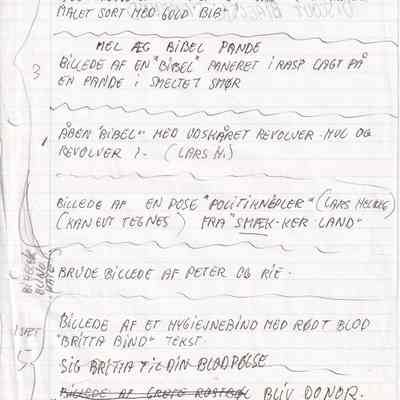 MALET SORT MED GULD "BIB"
MEL ÆG BIBEL PANDE
3
BILLEDE AF EN "BIBEL" PANERET I RASP LAGT PÅ
EN PANDE I SMELTET SMØR
ÅBEN "BIBEL" MED UDSKÅRET REVOLVER-HUL OG
REVOLVER I. (LARS H.)
BILLEDE AF EN POSE "POLITIKNEPLER" (LARS HEDEG)
(KAN EVT TEGNES) FRA "SMÆK-KER LAND"
BILLEDE
BLIND
KATE
BRUDE BILLEDE AF PETER OG RIE.
BILLEDE AF ET HYGIEJNEBIND MED RØDT BLOD
1 SÆT
"BRITTA BIND" TEKST.
5
SIG BRITTA TIL DIN BLODPØLSE
BILLEDE AF BLIV DONOR.